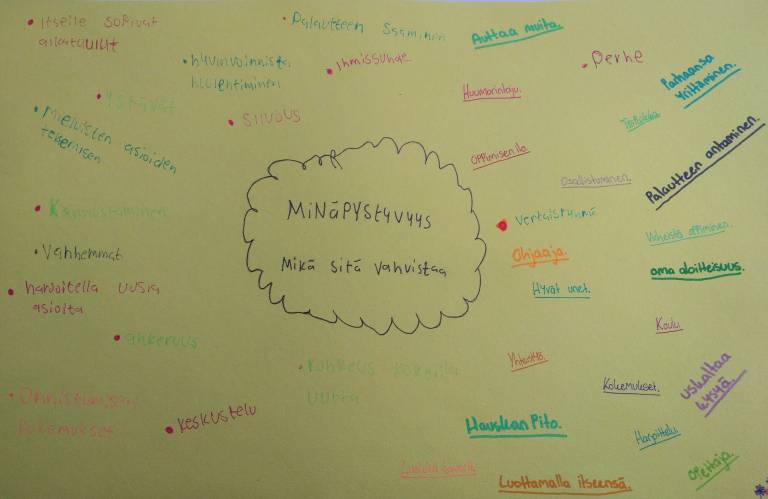 Itselle sopivat
aikataulut
Palautteen saaminen
Auttaa muita.
hyvinvoinnista
huolehtiminen
Ihmissuhde
Perhe
Parhaansa
yrittäminen.
Huumorintaju.
Ystävät
Mieluisten asioiden
tekeminen
siivous
oppimisen ilo.
Osallistuminen.
Palautteen antaminen.
MINÄPYSTYVYYS
Mikä sitä vahvistaa
Kannustaminen
vertaisryhmä
Virheistä oppiminen.
Vanhemmat
Ohjaaja.
oma aloitteisuus.
harjoitella uusia
asioita
Hyvät unet.
Koulu.
ahkeruus
Yhteistyö.
Rohkeus kokeilla
uutta
Kokemukset.
uskaltaa
kysyä.
Onnistumisen
kokemukset
keskustelu
Hauskan Pito.
Harjoittelu.
Opettaja.
Luottamalla itseensä.